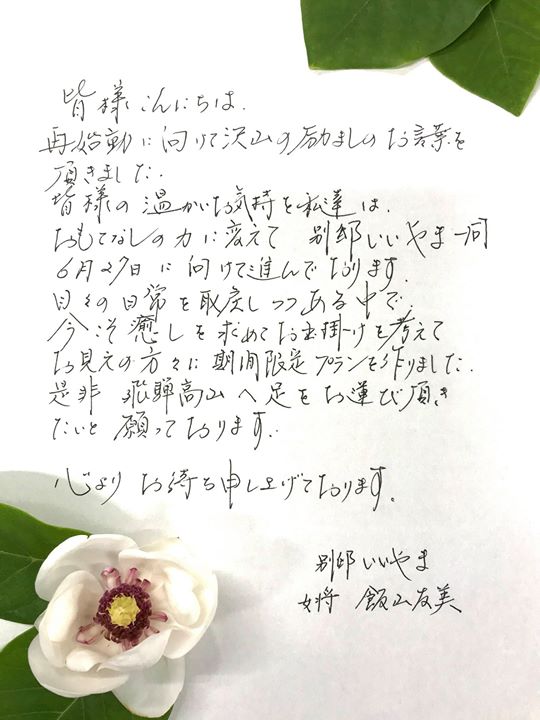 皆様こんにちは.
再始動に向けて沢山の励ましのお言葉を
頂きました.
皆様の温かいお気持を私達は.
おもてなしの力に変えて 別邸いいやま一同
6月27日に向けて進んでおります.
日々の日常を取戻しつつある中で.
今こそ癒しを求めてお出掛けを考えて
お見えの方々に期間限定プランを作りました.
是非 飛騨高山へ足をお運び頂き
たいと願っております.
心よりお待ち申し上げております.
別邸いいやま
女将 飯山友美